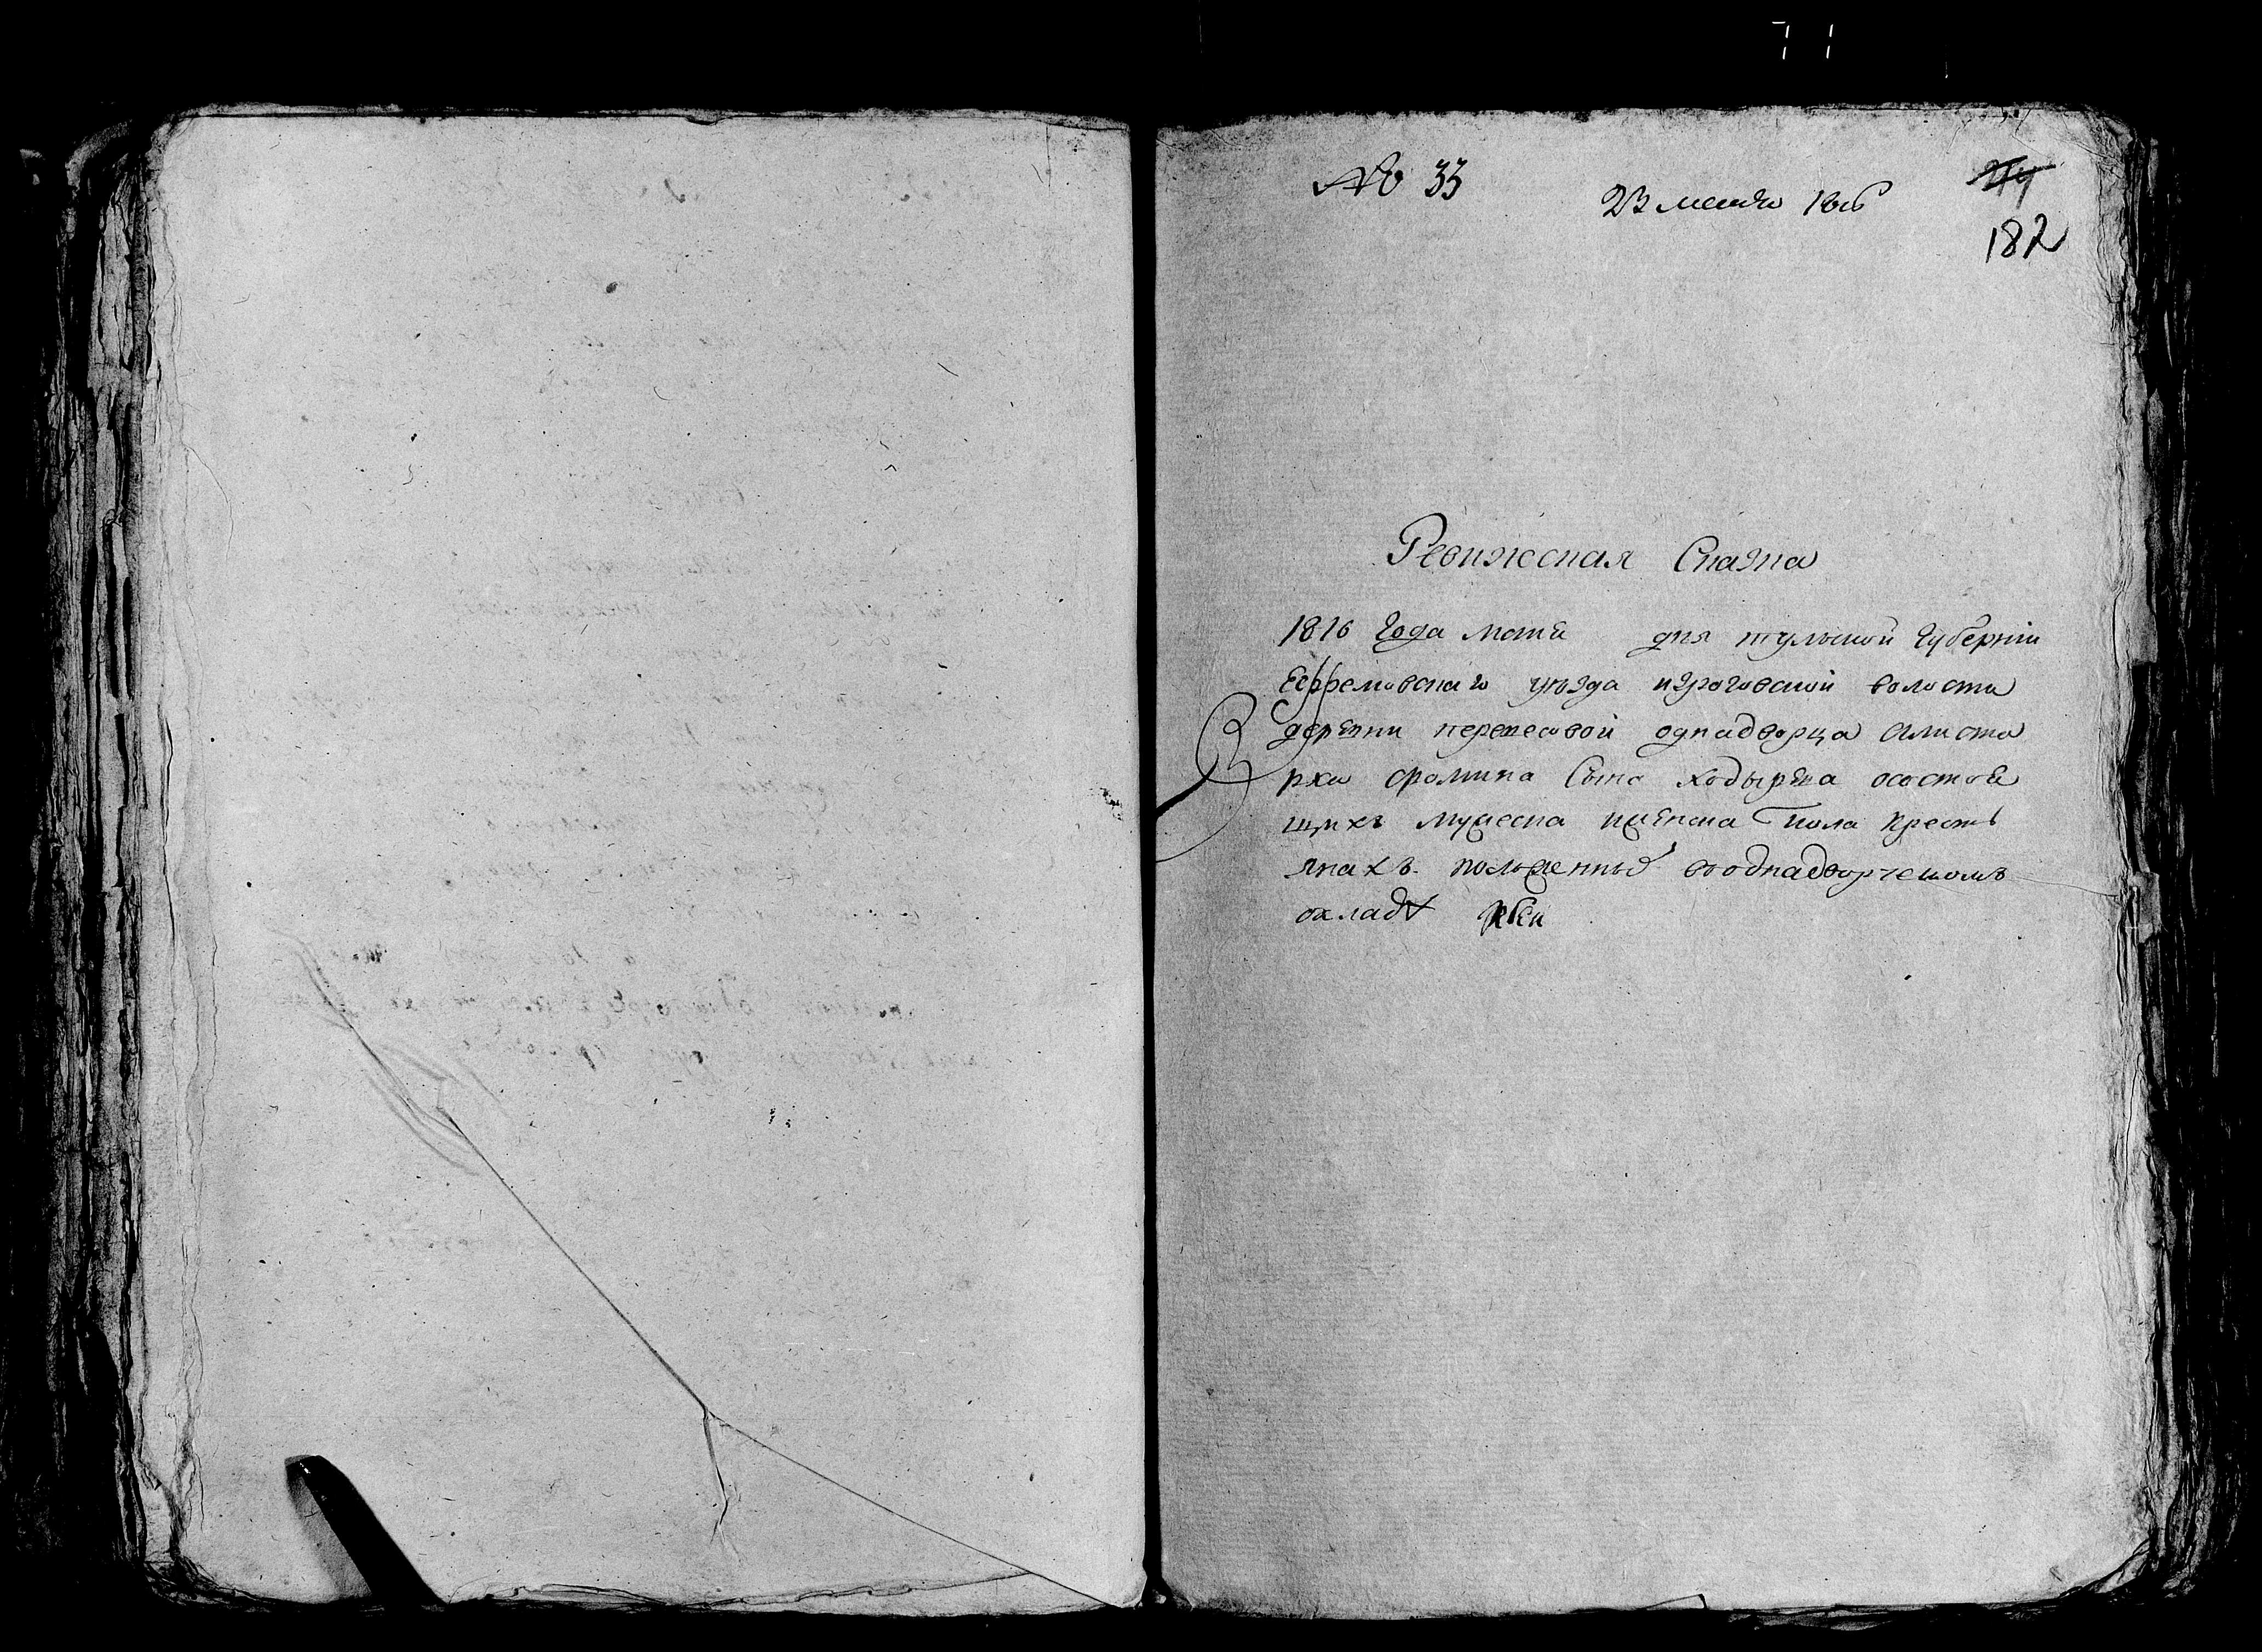 № 33
23 1816
214
182
Ревижеская Сказка
1816 года маия дня тульской губернии
Ефремовскаго уезда изроговской волости
деревни однадворца Алиста
рха фролиина Сына ходырева осостое
щихъ мужеска иженска пола кресть
янахъ воднадворческомъ
окладе